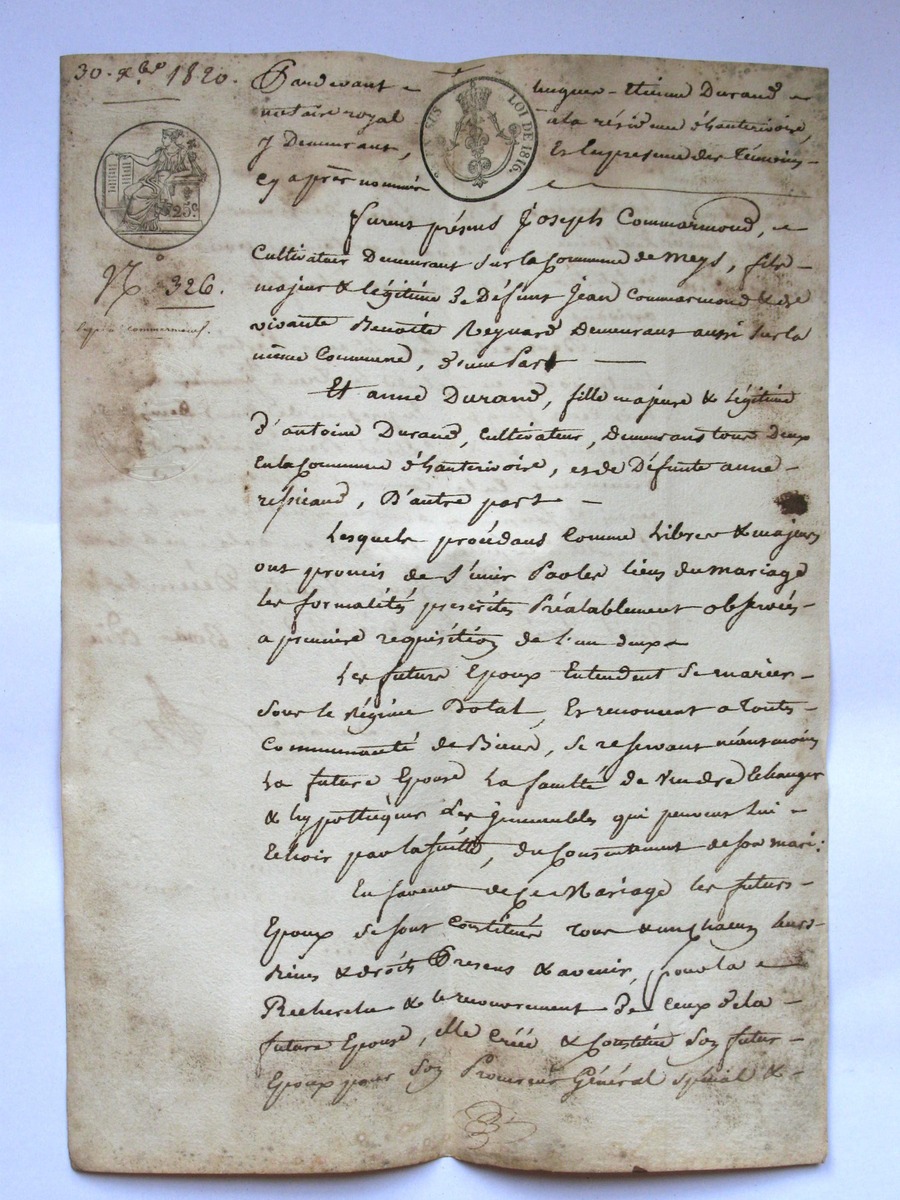 30. xbre 1820.
Pardevant
hugues-Etienne Durand
notaire royal
à la résidence d'hauterivoire,
y Demeurant,
Et En présence des Témoins
Cy après nommés
LOI DE 1816.
25c.
N° 326.
Furent présens Joseph Commarmond,
Cultivateur Demeurant sur la Commune de meys, fils
majeur & légitime de Défunt Jean Commarmond & de
vivante Benoite Reynard Demeurant aussi sur la
même Commune, d'une Part
Et anne Durand, fille majeure & légitime
d'antoine Durand, Cultivateur, Demeurans tous Deux
En la Commune d'hauterivoire, et de Défunte anne
D'autre part
Lesquels procédans Comme Libres & majeurs
ont promis de S'unir Par les liens du mariage
les formalités prescrites Préalablement observées
a premiere requisition de l'un deux
Les futurs Epoux Entendent Se marier
Sous le Régime Dotal, Et renoncent a Toute
Communauté de Biens, Se reservant néantmoins
La future Epouse La faculté de Vendre Echanger
& hypothéquer Les immeubles qui peuvent Lui
Echoir par la suitte, du Consentement de son mari:
En faveur de Ce Mariage les futurs
Epoux Se sont Constitués Tous & un Chacun leurs
Biens & droits Presens & avenir, pour la
Recherche & le recouvrement de Ceux de la
future Epouse, elle Créée & Constitue Son futur
Epoux pour Son Procureur Général Spécial &